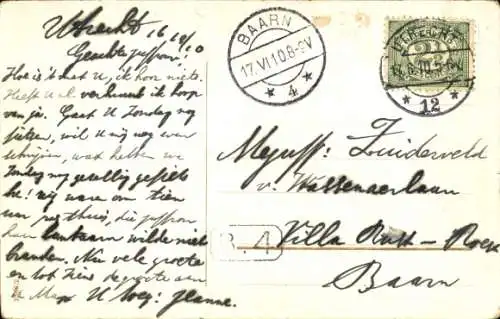 Utrecht 16 6/10
Geachte juffrou,
Hoe is 't met U, ik hoor niets.
Heeft U al verhuurd ik hoop
van ja. Gaat U Zondag nog
fietsen, wil U mij nog even
schrijven, wat hebben we
Zondag nog gezellig gefietst
hè! wij waren om tien
uur pas thuis, die juffrou
haar lantaarn wilde niet
branden. Nu vele groeten
en tot ziens de groeten aan
U Ma U Jeanne.
BAARN
17.VI.10.8-9V
4
UTRECHT
2½
12
Mejuff: Zuiderveld
v. Wassenaerlaan
Villa Rust-Roest
Baarn
B.4